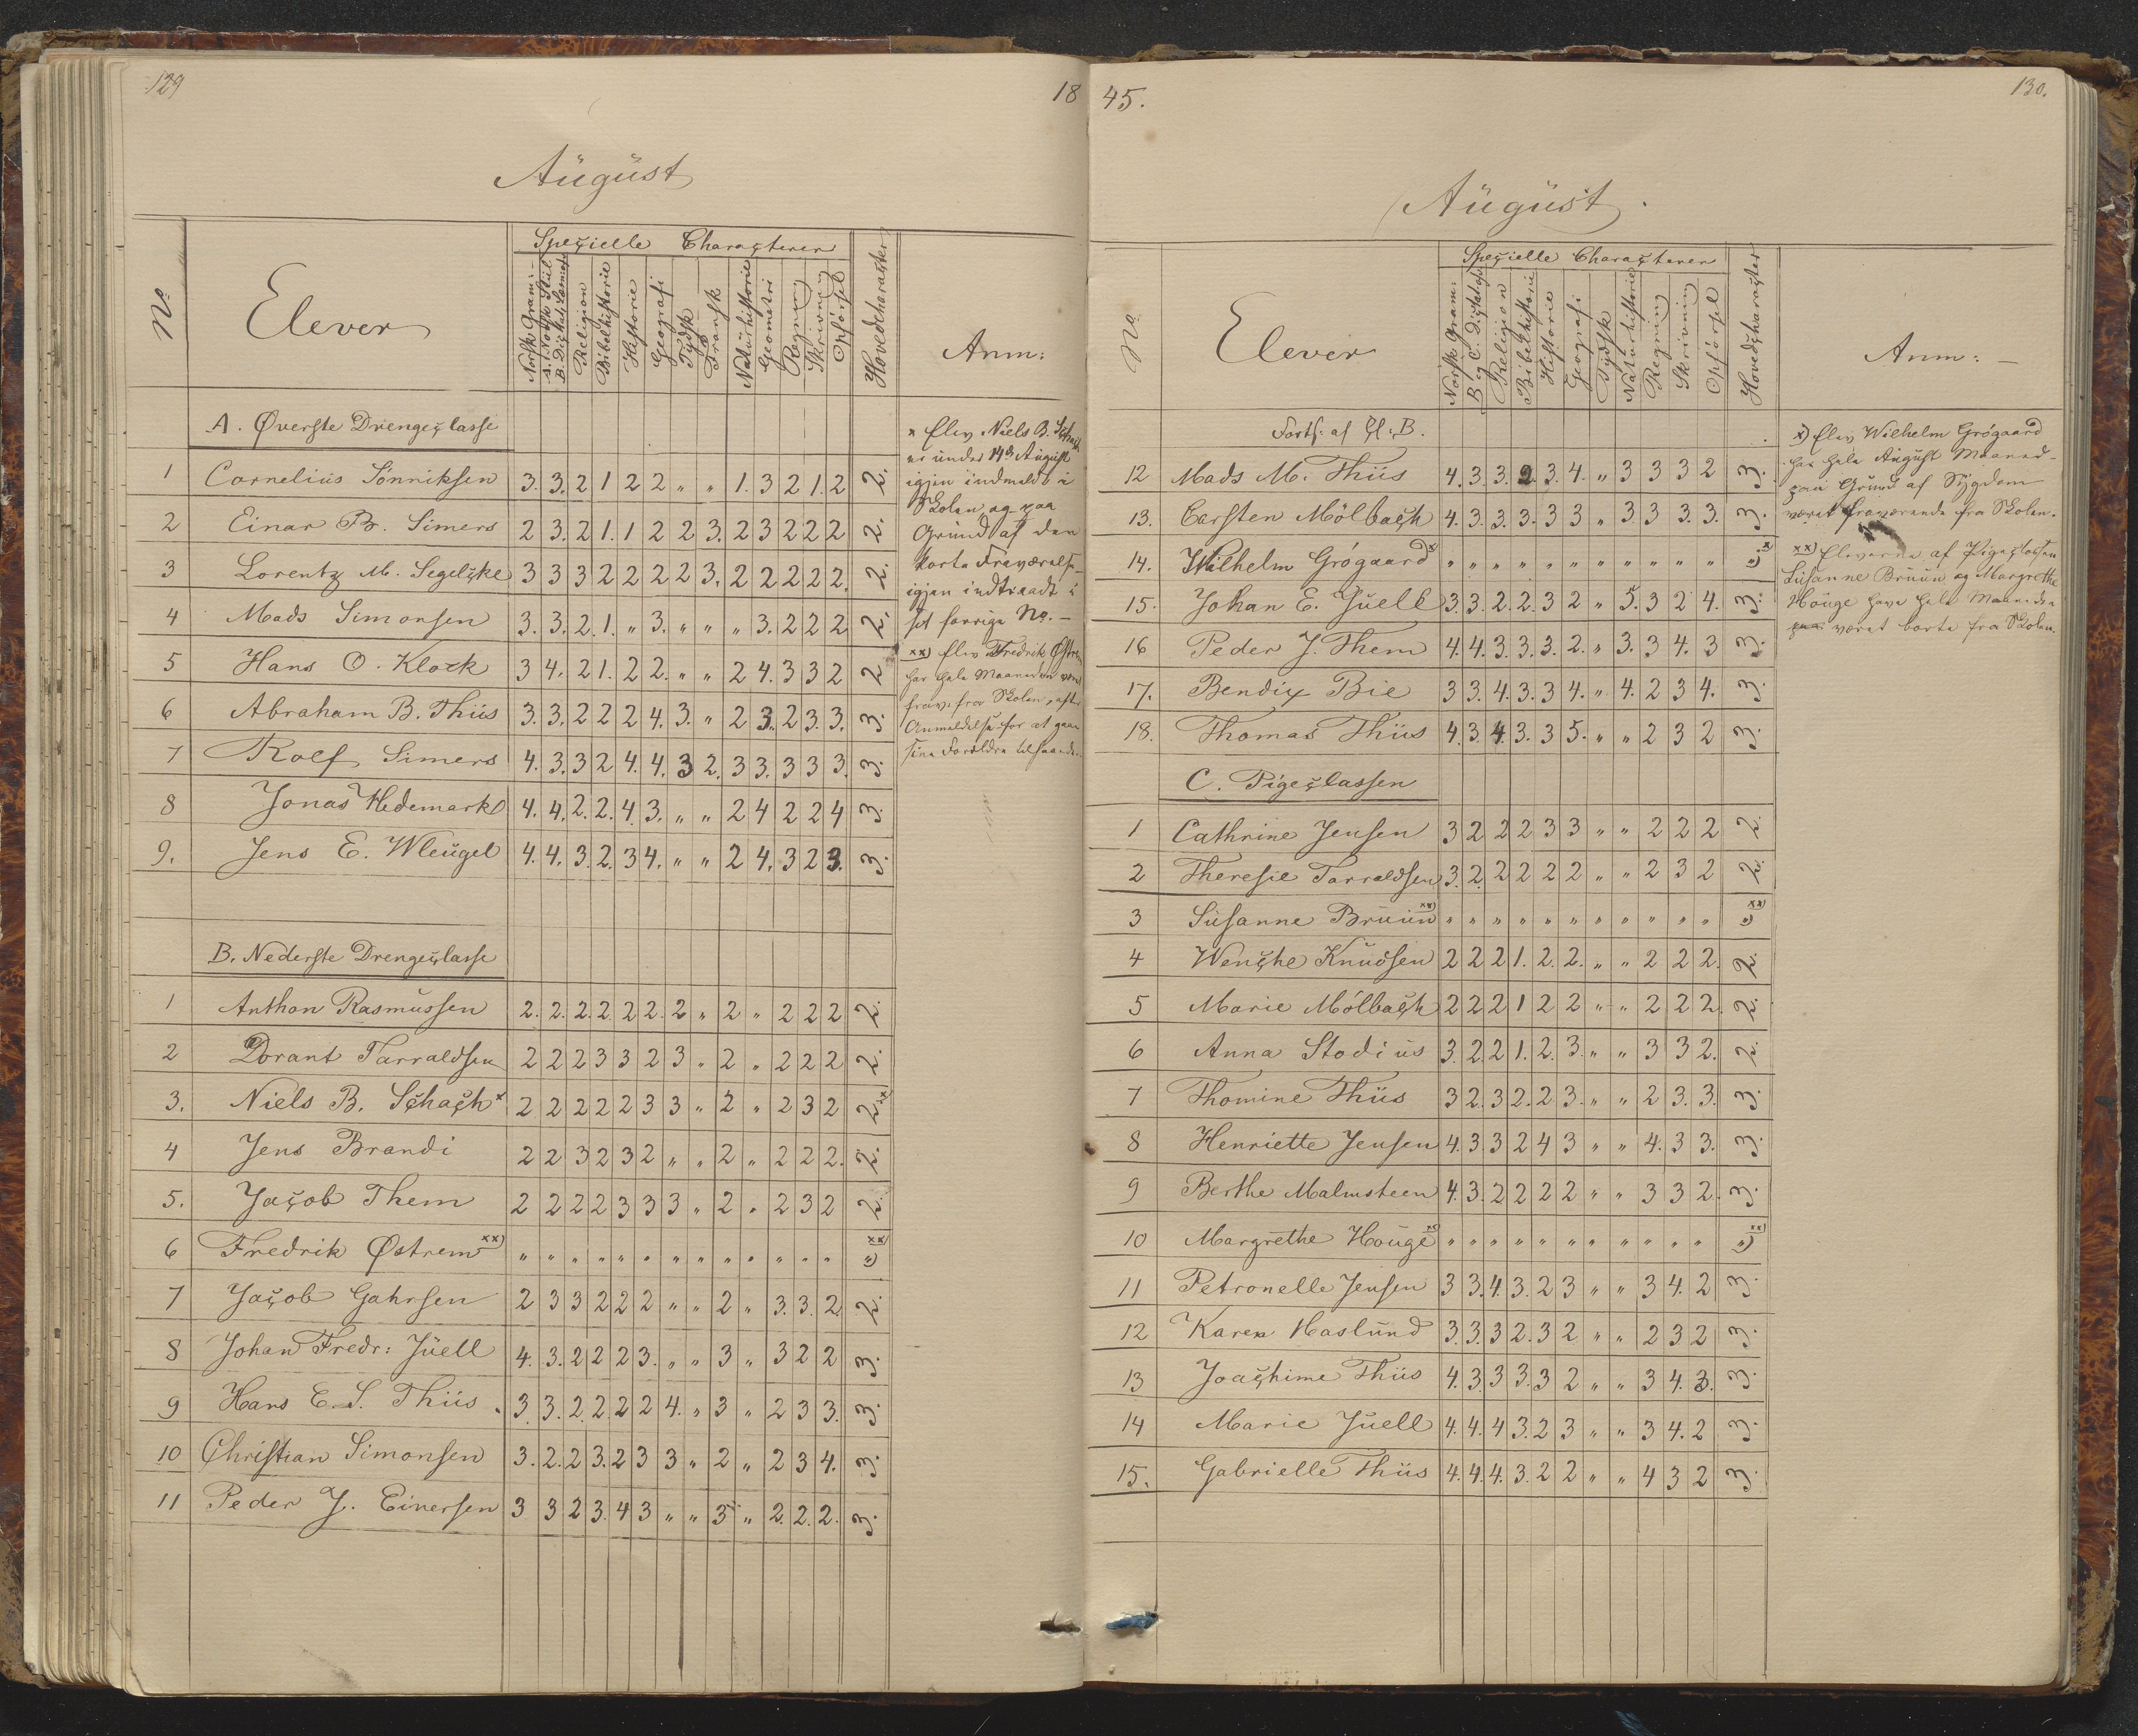 129
18
August
No
Elever
Specielle Characterer
Norsk Gram:
A. Norsk Stiil
B. Dictat.
Religion
Bibelhistorie
Historie
Geografi
Tydsk
Fransk
Naturhistorie
Geometri
Regning
Skrivning
Opførsel
Hovedcharacter
Anm:
A. Øverste Drengeclasse
1 Cornelius Sønniksen 3. 3. 2 1 2 2 " " 1. 3 2 1. 2 2.
2 Einar B. Simers 2 3. 2 1. 1 2 2 3. 2 3 2 2 2 2.
3 Lorentz M. Segelcke 3 3 3 2 2 2 2 2 3. 2 2 2 2 2. 2.
4 Mads Simonsen 3. 3. 2. 1. " 3. " " " 3. 2 2 2 2.
5 Hans O. Klock 3 4. 2 1. 2 2. " " 2 4. 3 3 2 2
6 Abraham B. Thiis 3. 3. 2 2 2 4. 3. " 2 3. 2 3. 3. 3.
7 Rolf Simers 4. 3. 3 2 4. 4. 3 2. 3 3. 3 3 3. 3.
8 Jonas Hedemark 4. 4. 2. 2. 4. 3. " " 2 4 2 2 4 3.
9. Jens E. Wleugel 4. 4. 3. 2. 3 4. " " 2 4. 3 2 3. 3.
B. Nederste Drengeclasse
1 Anthon Rasmussen 2. 2. 2. 2. 2 2. 2 " 2 " 2 2 2 2.
2 Dorant Tarraldsen 2 2 2 3 3 2 3 " 2 " 2 2 2 2.
3. Niels B. Schach x 2 2 2 2 2 3 3 " 2 " 2 3 2 2. x)
4 Jens Brandi 2 2 3 2 3 2 " " 2 " 2 2 2. 2.
5. Jacob Them 2 2 2 2 3 3 3 " 2 " 2 3 2 2.
6 Fredrik Østrem xx) " " " " " " " " " " " " " " xx)
7 Jacob Gahrsen 2 3 3 2 2 2 " " 2 " 3. 3. 2 2.
8 Johan Fredr: Juell 4. 3. 2 2 2 3. " " 3 " 3 2 2 3.
9 Hans E. S. Thiis 3. 3. 2. 2. 2 2 4. " 3 " 2 3 3. 3.
10 Christian Simonsen 3. 2. 2 3. 2 3 3 " 2 " 2 3 4. 3.
11 Peder J. Einersen 3 3 2 3. 4 3 " " 3 " 2. 2. 2. 3.
x Elev Niels B. Schach
er under 14de August
igjen indmeldt i
Skolen og paa
Grund af den
korte Fraværelse
igjen indtraadt i
sit forrige No. –
xx) Elev Fredrik Østrem
har hele Maaneden været
frav. fra Skolen, efter
Anmeldelse for at gaae
sine Forældre tilhaande.
45.
130.
August.
No
Elever
Specielle Characterer
Norsk Gram:
B og C. Dictat
Religion
Bibelhistorie
Historie
Geografi
Tydsk
Naturhistorie
Regning
Skrivning
Opførsel
Hovedcharacter
Anm: –
Forts: af Cl: B.
12 Mads M. Thiis 4. 3. 3. 2. 3. 4. " 3 3 3 2 3.
13. Carsten Mölbach 4. 3. 3. 3. 3 3 " 3. 3 3. 3. 3.
14. Wilhelm Grøgaard x " " " " " " " " " " " " x)
15. Johan E. Juell 3. 3. 2. 2. 3 2 " 5. 3 2 4. 3.
16 Peder J. Them 4. 4. 3. 3. 3. 2. " 3. 3 4. 3 3.
17. Bendix Bie 3 3. 4. 3. 3 4. " 4. 2 3 4. 3.
18. Thomas Thiis 4. 3. 4. 3. 3 5. " " 2 3 2 3.
C. Pigeclassen
1 Cathrine Jensen 3 2 2 2 3 3 " " 2 2 2 2.
2 Theresie Tarraldsen 3. 2. 2 2 2 2 " " 2 3 2 2.
3 Susanne Bruun xx) " " " " " " " " " " " " xx)
4 Wenche Knudsen 2 2 2 1. 2. 2. " " 2 2 2. 2.
5 Marie Mölbach 2 2 2 1 2 2 " " 2 2 2. 2.
6 Anna Stodius 3. 2. 2 1. 2. 3. " " 3 3 2. 2.
7 Thomine Thiis 3 2. 3 2. 2 3. " " 2 3. 3. 3.
8 Henriette Jensen 4. 3 3 2 4 3 " " 4. 3 3. 3.
9 Berthe Malmsteen 4. 3. 2 2 2 2 " " 3 3 2. 3.
10 Margrethe Houge xx " " " " " " " " " " " " xx)
11 Petronelle Jensen 3 3. 4. 3. 2 3 " " 3 4. 2 3.
12 Karen Haslund 3. 3. 3 2. 3 2 " " 2 3 2 3.
13 Joachime Thiis 4. 3. 3 3. 3 2 " " 3 4. 3. 3.
14 Marie Juell 4. 4. 4 3. 2 3 " " 3 4. 2 3.
15. Gabrielle Thiis 4. 4. 4. 3. 2 2 " " 4 3 2 3.
x) Elev Wilhelm Grøgaard
har hele August Maaned
paa Grund af Sygdom
været fraværende fra Skolen.
xx) Eleverne af Pigeclassen
Susanne Bruun og Margrethe
Houge have hele Maaneden
været borte fra Skolen.